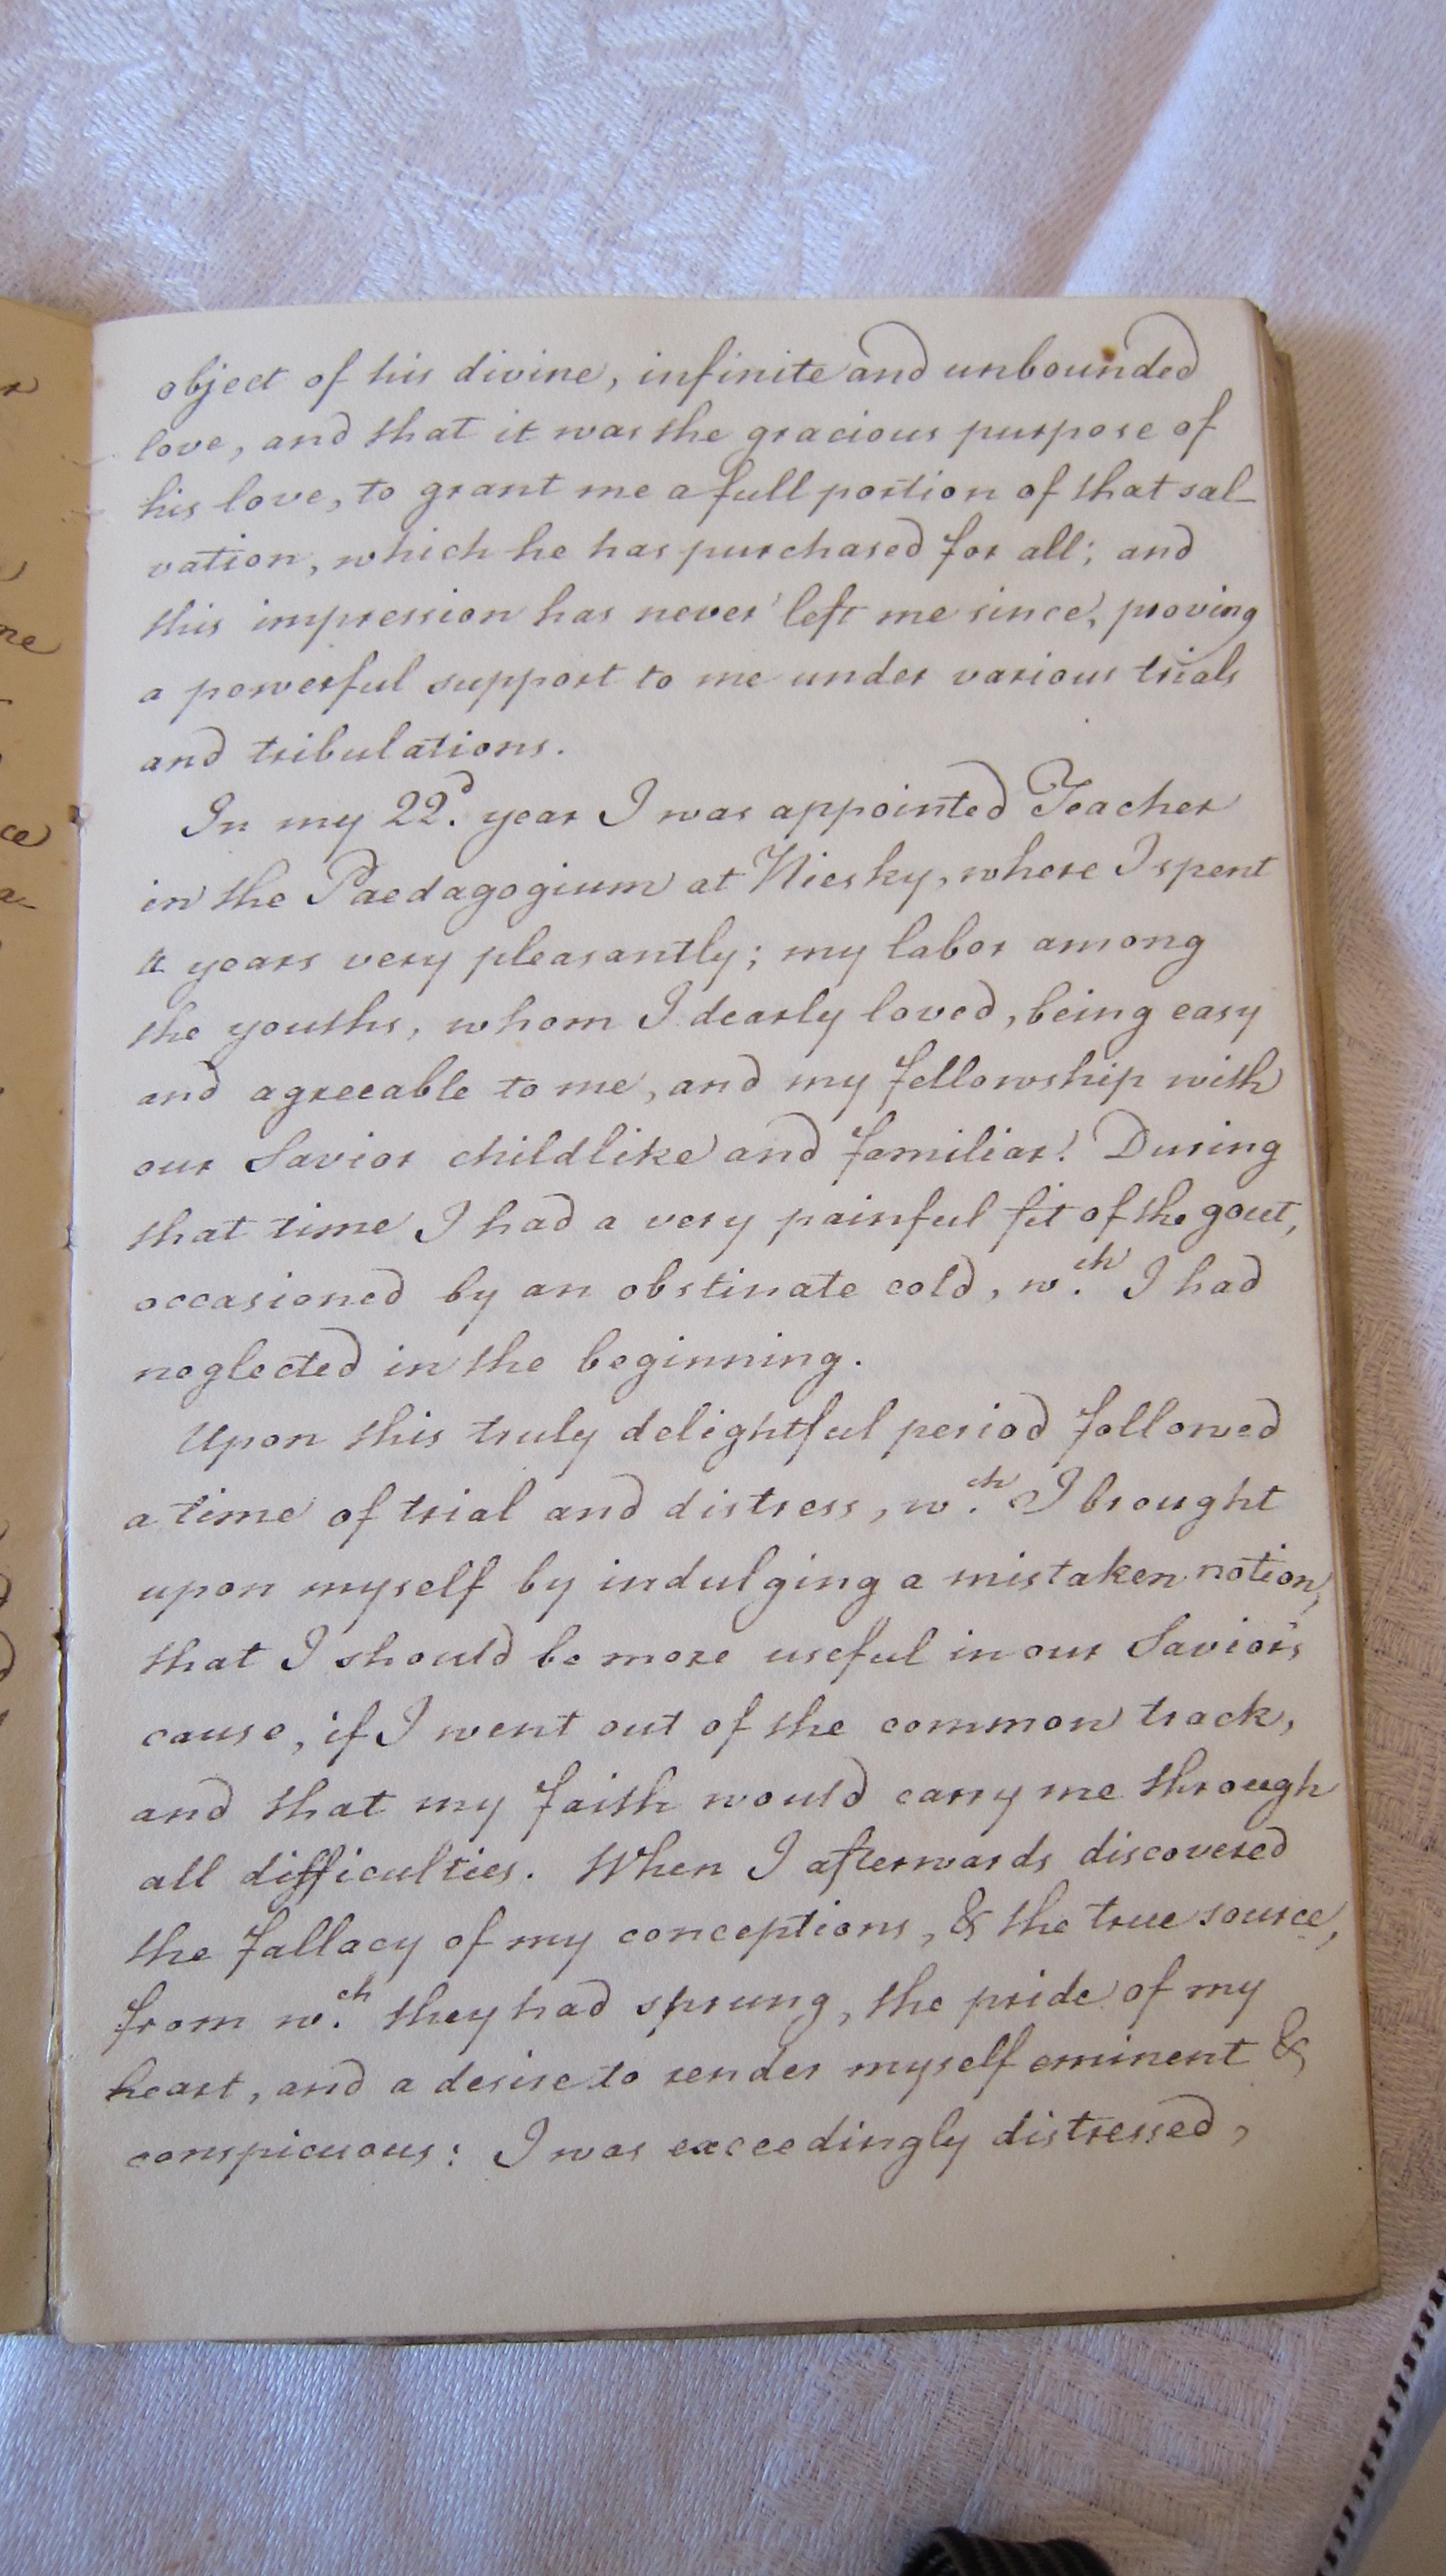 object of his divine, infinite and unbounded
love, and that it was the gracious purpose of
his love, to grant me a full portion of that sal-
vation, which he has purchased for all; and
this impression has never left me since, proving
a powerful support to me under various trials
and tribulations.
In my 22d. year I was appointed Teacher
in the Paedagogium at Niesky, where I spent
4 years very pleasantly; my labor among
the youths, whom I dearly loved, being easy
and agreeable to me, and my fellowship with
our Savior childlike and familiar. During
that time I had a very painful fit of the gout,
occasioned by an obstinate cold, w.ch I had
neglected in the beginning.
Upon this truly delightful period followed
a time of trial and distress, w.ch I brought
upon myself by indulging a mistaken notion,
that I should be more useful in our Savior's
cause, if I went out of the common track,
and that my faith would carry me through
all difficulties. When I afterwards discovered
the fallacy of my conceptions, & the true source,
from w.ch they had sprung, the pride of my
heart, and a desire to render myself eminent &
conspicuous: I was exceedingly distressed,